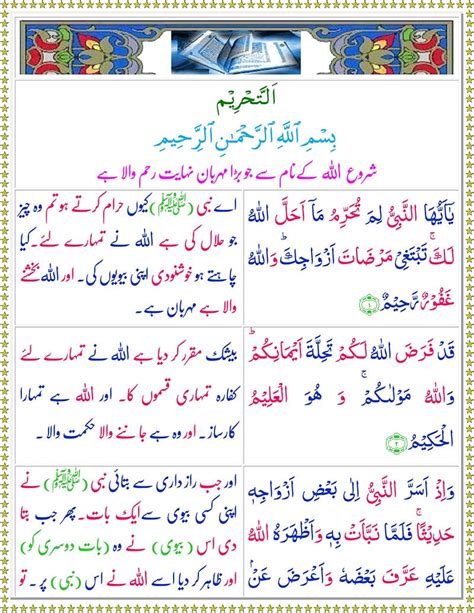 اَلتَّحْرِيْم
بِسْمِ اللّٰهِ الرَّحْمٰنِ الرَّحِيْمِ
شروع اللہ کے نام سے جو بڑا مہربان نہایت رحم والا ہے
يٰۤاَيُّهَا النَّبِىُّ لِمَ تُحَرِّمُ مَاۤ اَحَلَّ اللّٰهُ
لَكَ‌ۚ تَبْتَغِىْ مَرْضَاتَ اَزْوَاجِكَ‌ؕ وَاللّٰهُ
غَفُوْرٌ رَّحِيْمٌ ﴿۱﴾
اے نبی (ﷺ) کیوں حرام کرتے ہو تم وہ چیز
جو حلال کی ہے اللہ نے تمہارے لئے ۔ کیا
چاہتے ہو خوشنودی اپنی بیویوں کی۔ اور اللہ بخشنے
والا ہے مہربان ہے۔
قَدْ فَرَضَ اللّٰهُ لَكُمْ تَحِلَّةَ اَيْمَانِكُمْ‌ؕ
وَاللّٰهُ مَوْلٰٮكُمْ‌ۚ وَ هُوَ الْعَلِيْمُ
الْحَكِيْمُ ﴿۲﴾
بیشک مقرر کر دیا ہے اللہ نے تمہارے لئے
کفارہ تمہاری قسموں کا۔ اور اللہ ہے تمہارا
کارساز۔ اور وہ ہے جاننے والا حکمت والا۔
وَاِذْ اَسَرَّ النَّبِىُّ اِلٰى بَعْضِ اَزْوَاجِهٖ
حَدِيْثًا‌ۚ فَلَمَّا نَبَّاَتْ بِهٖ وَاَظْهَرَهُ اللّٰهُ
عَلَيْهِ عَرَّفَ بَعْضَهٗ وَاَعْرَضَ عَنْۢ
اور جب راز داری سے بتائی نبی (ﷺ) نے
اپنی کسی بیوی سے ایک بات۔ پھر جب بتا
دی اس (بیوی) نے وہ (بات دوسری کو)
اور ظاہر کر دیا اسے اللہ نے اس (نبی) پر ۔ تو